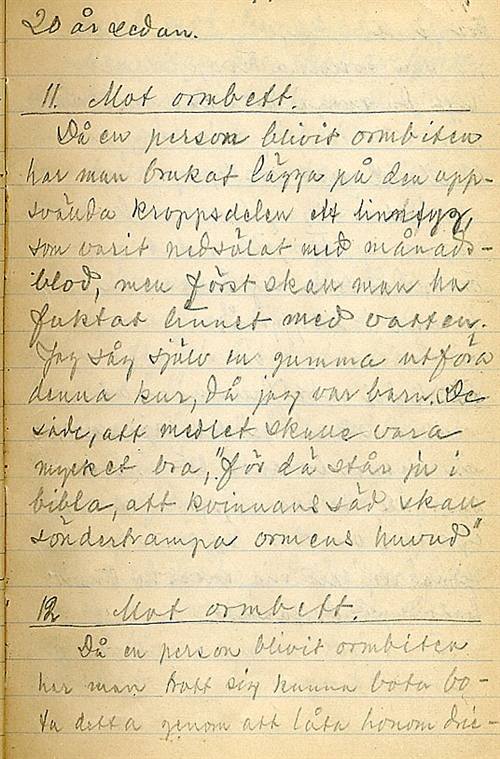 20 år sedan.
11. Mot ormbett.
Då en person blivit ormbiten
har man brukat lägga på den upp-
svällda kroppsdelen ett linntyg,
som varit nedsölat med månads-
blod, men först skall man ha
fuktat linnet med vatten.
Jag såg själv en gumma utföra
denna kur, då jag var barn. De
sade, att medlet skulle vara
mycket bra, "för dä står ju i
bibla, att kvinnans säd skall
söndertrampa ormens huvud"
12. Mot ormbett.
Då en person blivit ormbiten
har man trott sig kunna bota bo-
ta detta genom att låta honom dric-